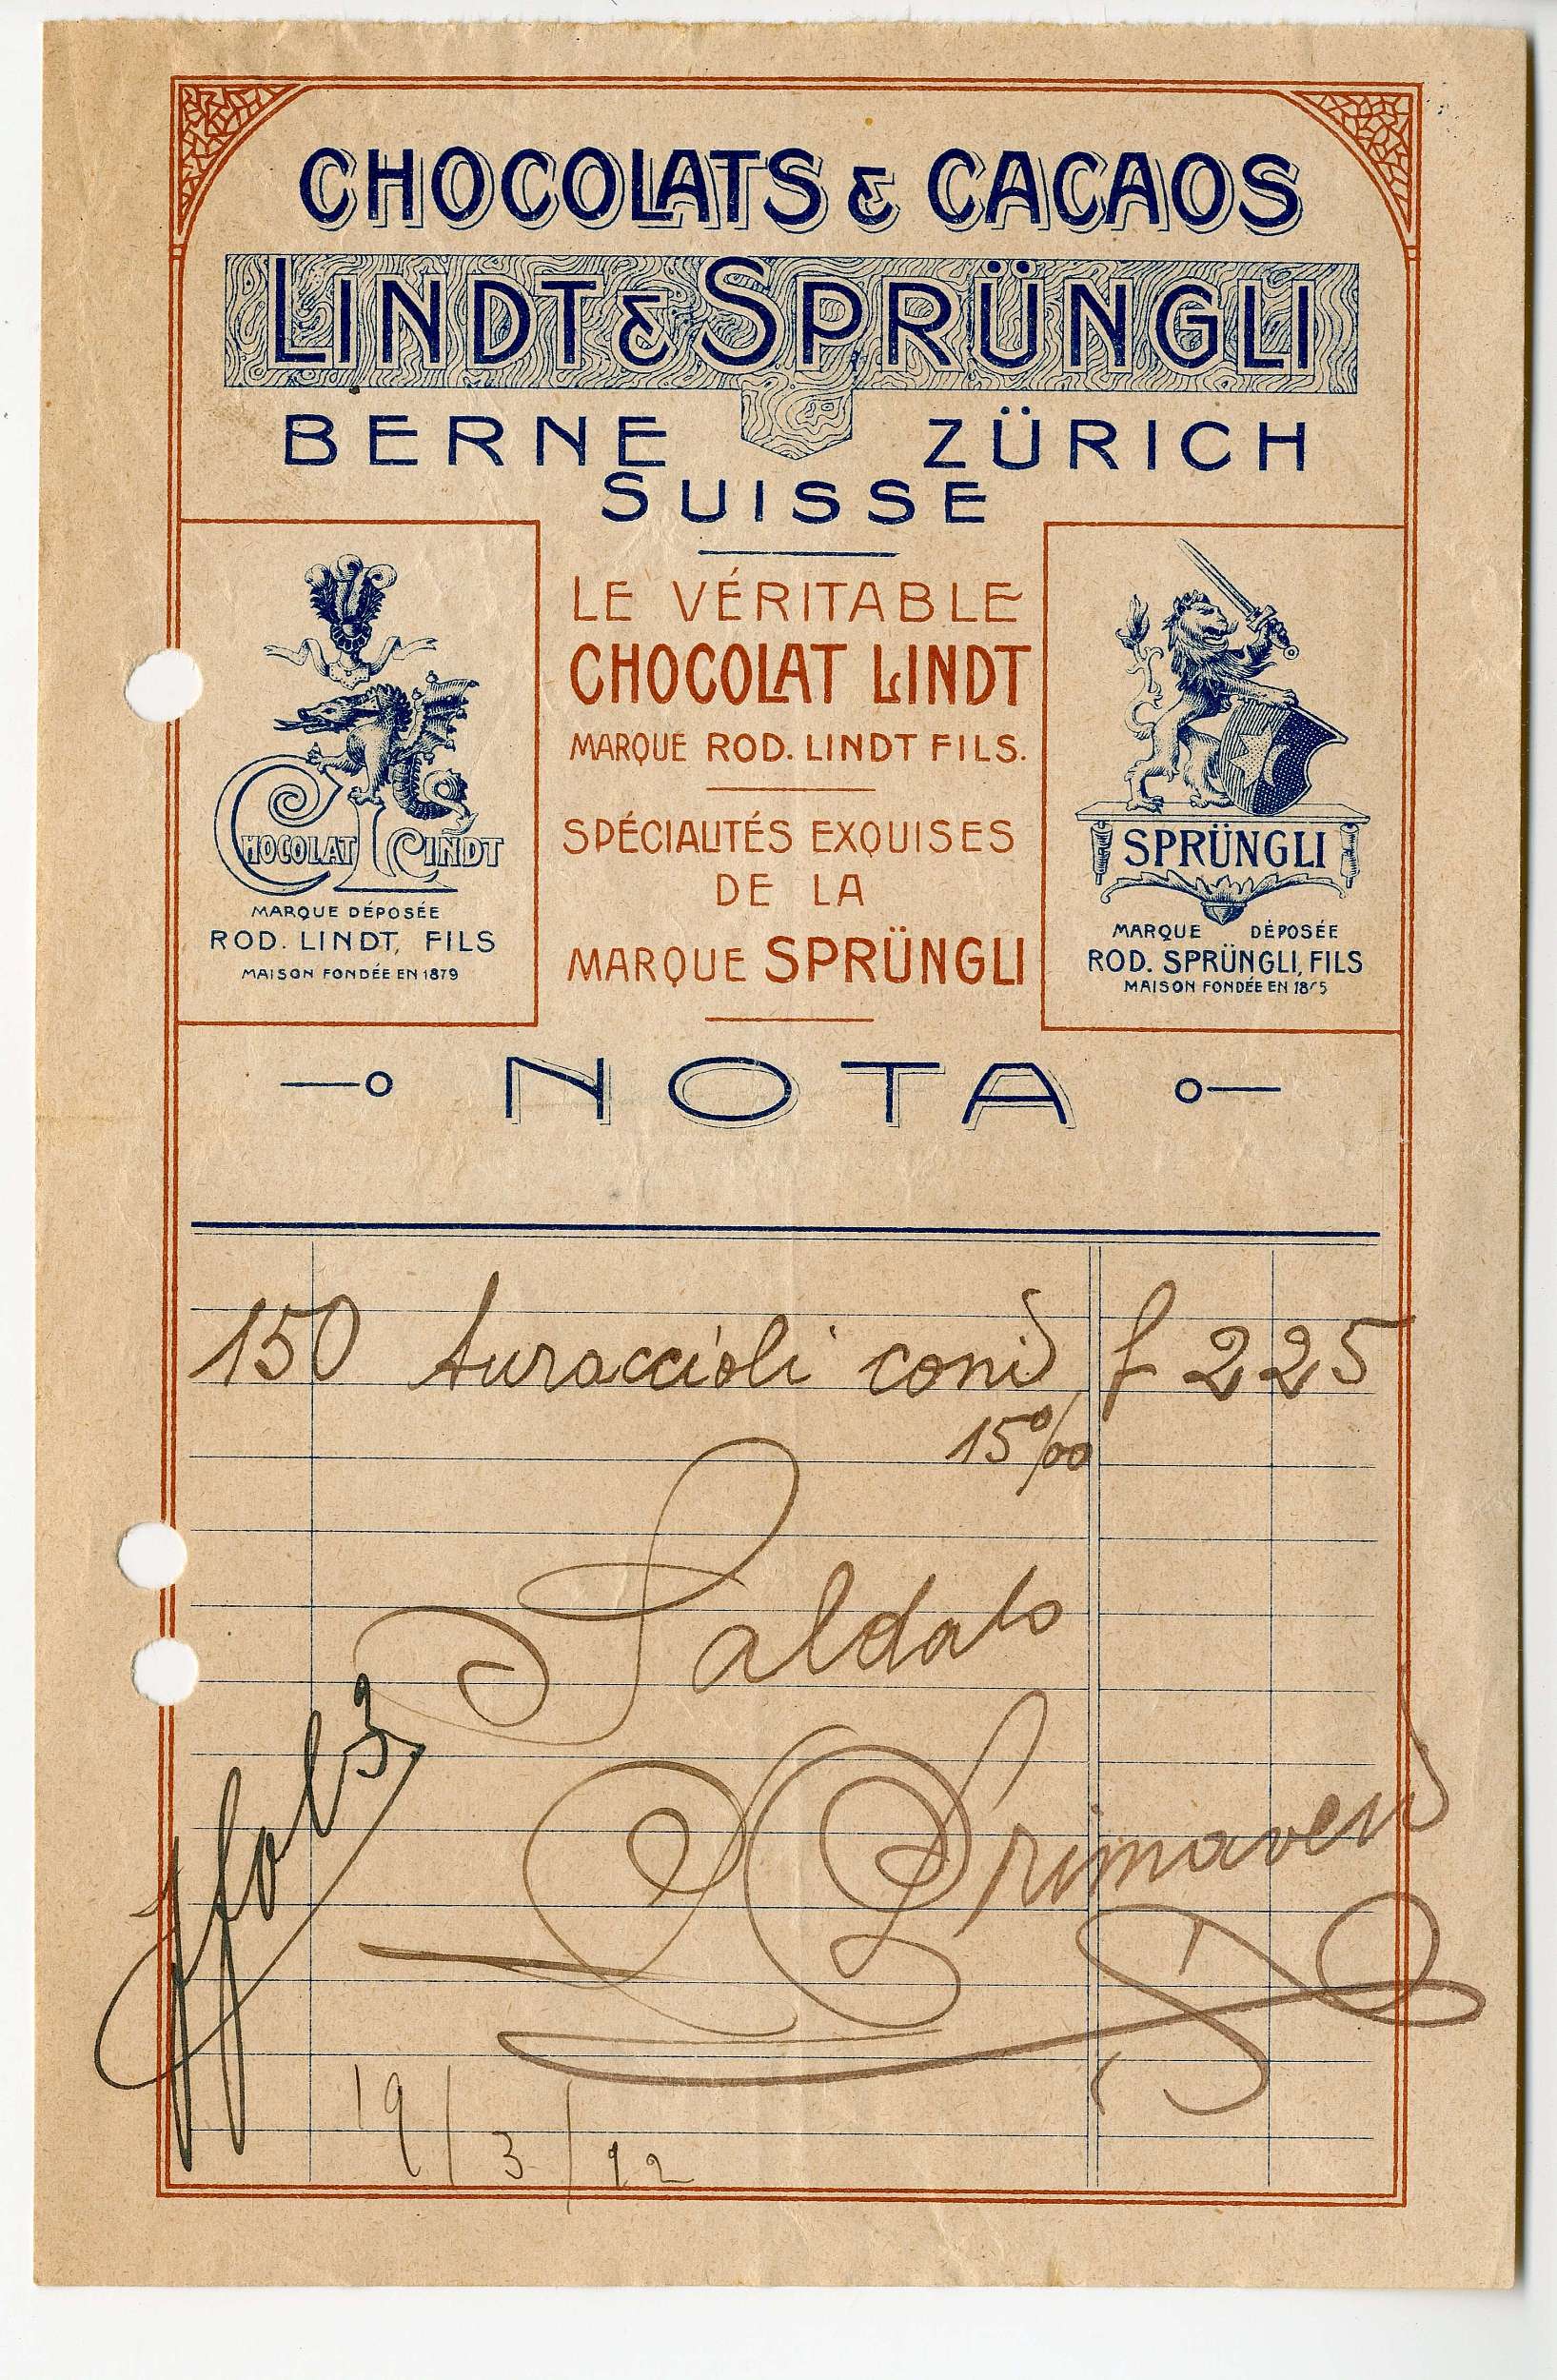 CHOCOLATS & CACAOS
LINDT & SPRÜNGLI
BERNE ZÜRICH
SUISSE
LE VÉRITABLE
CHOCOLAT LINDT
MARQUE ROD. LINDT FILS.
SPÉCIALITÉS EXQUISES
DE LA
MARQUE SPRÜNGLI
CHOCOLAT LINDT
MARQUE DÉPOSÉE
ROD. LINDT, FILS
MAISON FONDÉE EN 1879
SPRÜNGLI
MARQUE DÉPOSÉE
ROD. SPRÜNGLI, FILS
MAISON FONDÉE EN
NOTA
150 turaccioli conid f 225
15%0
Saldato
Primavera
19/3/12